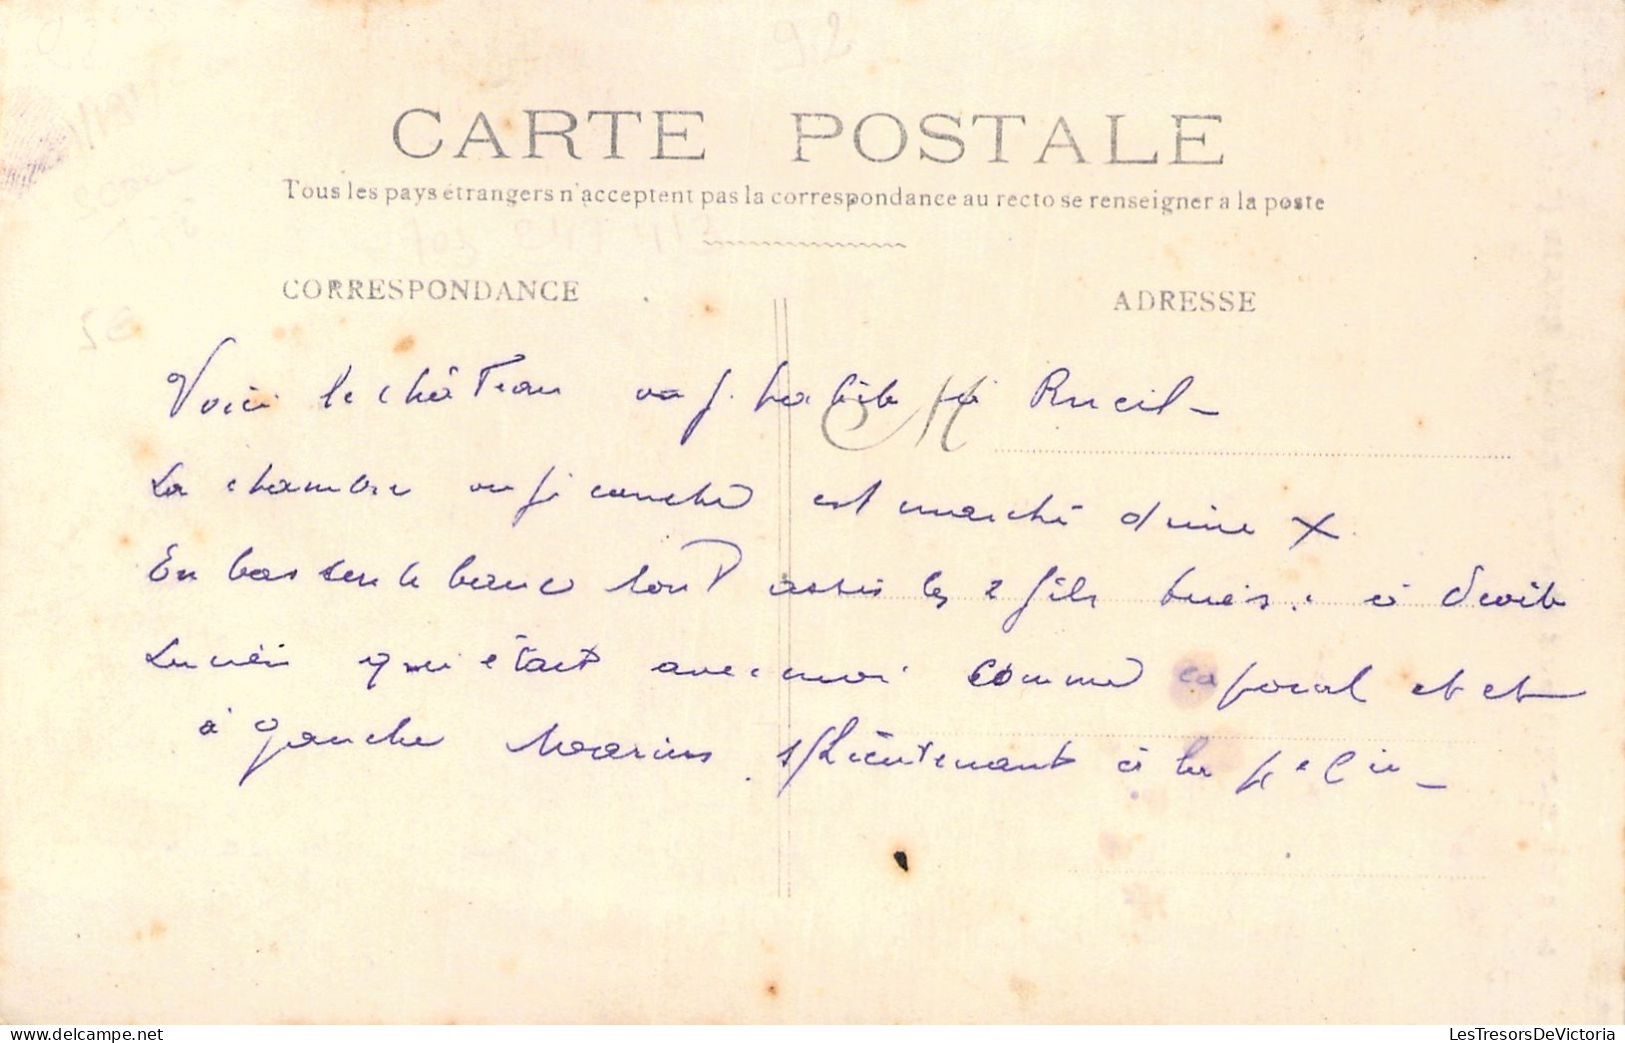 92
CARTE POSTALE
Tous les pays étrangers n'acceptent pas la correspondance au recto se renseigner a la poste
CORRESPONDANCE
ADRESSE
5€
Voici le château ou j. habite à Rueil -
La chambre ou je couche est marché d'une X
En bas sur le banc sont assis les 2 fils tués : à droite
Lucien qui était avec moi comme caporal et et
à gauche Marius s/Lieutenant à la
LesTresorsDeVictoria